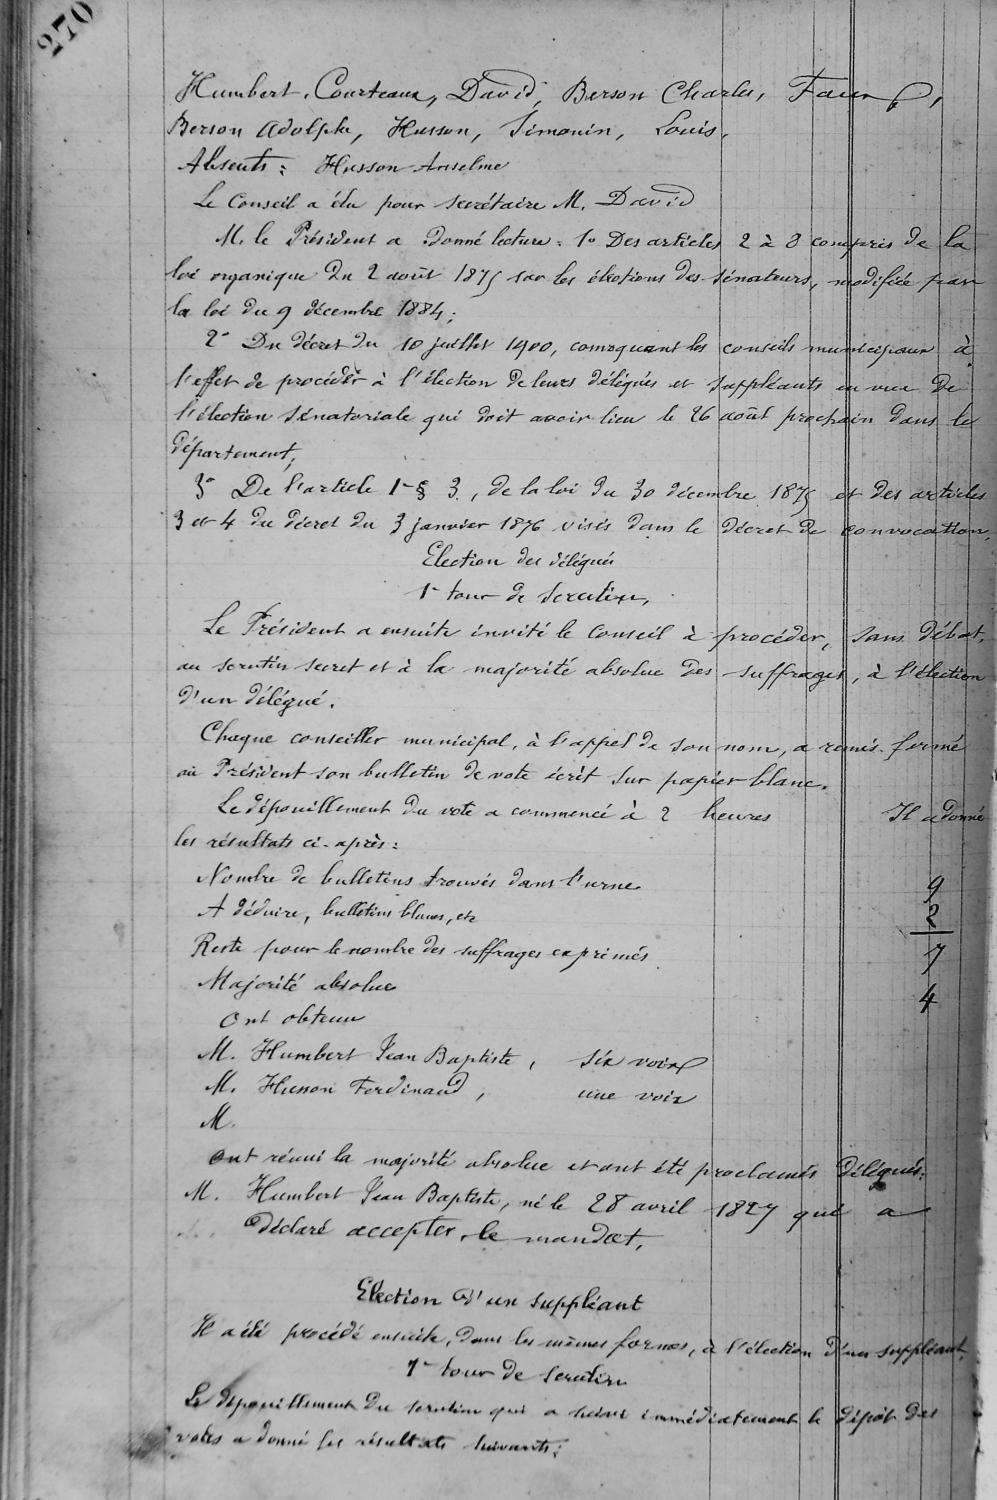 270
Humbert, Courteaux, David, Berson Charles, Faux,
Berson Adolphe, Husson, Simonin, Louis.
Absents : Husson Anselme
Le Conseil a élu pour secrétaire M. David
M. le Président a donné lecture : 1° Des articles 2 à 8 compris de la
loi organique du 2 août 1875 sur les élections des sénateurs, modifiée par
la loi du 9 décembre 1884;
2° Du décret du 10 juillet 1900, convoquant les conseils municipaux à
l'effet de procéder à l'élection de leurs délégués et suppléants en vue de
l'élection sénatoriale qui doit avoir lieu le 26 août prochain dans le
département;
3° De l'article 1er § 3, de la loi du 30 décembre 1875 et des articles
3 et 4 du décret du 3 janvier 1876 visés dans le décret de convocation.
Election des délégués
1er tour de scrutin,
Le Président a ensuite invité le Conseil à procéder, sans débat,
au scrutin secret et à la majorité absolue des suffrages, à l'élection
d'un délégué.
Chaque conseiller municipal, à l'appel de son nom, a remis fermé
au Président son bulletin de vote écrit sur papier blanc.
Le dépouillement du vote a commencé à 2 heures Il a donné
les résultats ci-après :
Nombre de bulletins trouvés dans l'urne 9
A déduire, bulletins blancs, etc 2
Reste pour le nombre des suffrages exprimés 7
Majorité absolue 4
Ont obtenu
M. Humbert Jean Baptiste, six voix
M. Husson Ferdinand, une voix
M.
Ont réuni la majorité absolue et ont été proclamés délégués:
M. Humbert Jean Baptiste, né le 28 avril 1827 qui a
déclaré accepter le mandat.
Election d'un suppléant
Il a été procédé ensuite, dans les mêmes formes, à l'élection d'un suppléant.
1er tour de scrutin
Le dépouillement du scrutin qui a suivi immédiatement le dépôt des
votes a donné les résultats suivants :